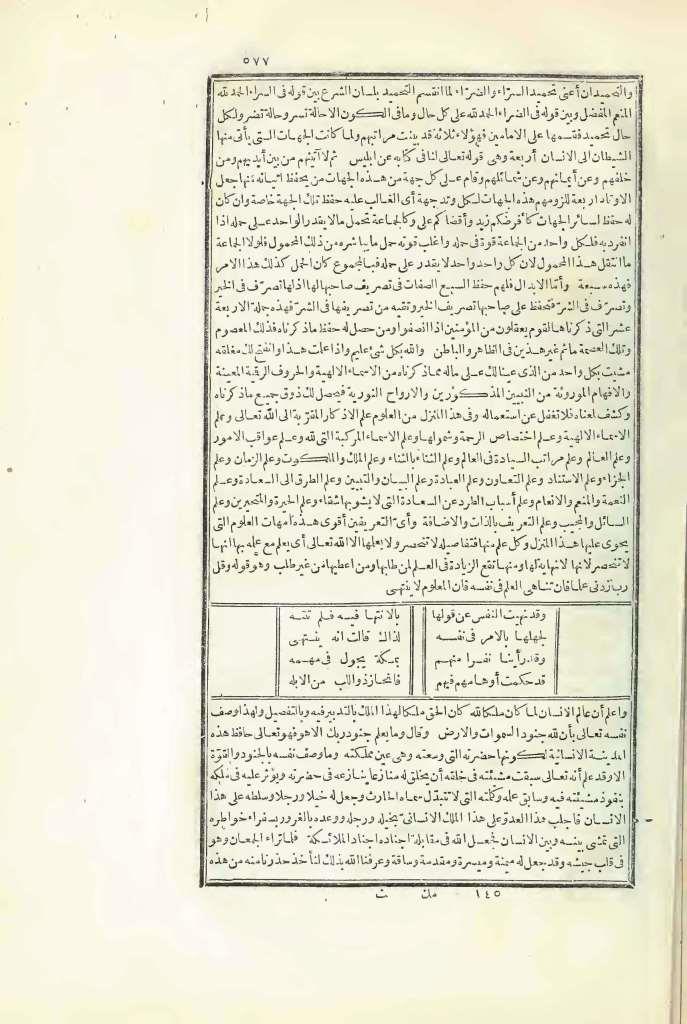 ٥٧٧
والتحميدان أعني تحميد السراء والضراء لما انقسم التحميد بلسان الشرع بين قوله في السراء الحمد لله
المنعم المفضل وبين قوله في الضراء الحمد لله على كل حال وما في الكون الا حالة تسر وحالة تضر ولكل
حال تحميد فقسمها على الامامين فهؤلاء ثلاثة قد بينت مراتبهم ولما كانت الجهات التي يأتي منها
الشيطان الى الانسان أربعة وهي قوله تعالى لنا في كتابه عن ابليس ثم لآتينهم من بين أيديهم ومن
خلفهم وعن أيمانهم وعن شمائلهم وقام على كل جهة من هذه الجهات من يحفظ اتيانه منها جعل
الاوتاد أربعة للزومهم هذه الجهات لكل وتد جهة أي الغالب عليه حفظ تلك الجهة خاصة وان كان
له حفظ لسائر الجهات كأفرضكم زيد وأقضاكم علي وكالجماعة تحمل ما لا يقدر الواحد على حمله اذا
انفرد به فلكل واحد من الجماعة قوة في حمله وأغلب قوته حمل ما يباشره من ذلك المحمول فلولا الجماعة
ما انتقل هذا المحمول لان كل واحد واحد لا يقدر على حمله فبالمجموع كان الحمل كذلك هذا الامر
فهذه سبعة وأما الابدال فلهم حفظ السبع الصفات في تصريف صاحبها لها اذ لها تصرف في الخير
وتصرف في الشر فتحفظ على صاحبها تصريف الخير وتقيه من تصريفها في الشر فهذه جملة الاربعة
عشر التي ذكرناها لقوم يعقلون من المؤمنين اذا أنصفوا ومن حصل له حفظ ما ذكرناه فذلك المعصوم
وتلك العصمة ما ثم غير هذين في الظاهر والباطن والله بكل شئ عليم واذا علمت هذا وانفتح لك مغلقه
مشيت بكل واحد من الذي عينا لك على ماله مما ذكرناه من الاسماء الالهية والحروف الرقمية المعينة
والافهام الموروثة من النبيين المذكورين والارواح النورية فيحصل لك ذوق جميع ما ذكرناه
وكشف لمعناه فلا تغفل عن استعماله وفي هذا المنزل من العلوم علم الاذكار المقربة الى الله تعالى وعلم
الاسماء الالهية وعلم اختصاص الرحمة وشمولها وعلم الاسماء المركبة التي لله وعلم عواقب الامور
وعلم العالم وعلم مراتب السيادة في العالم وعلم الثناء بالثناء وعلم الملك والملكوت وعلم الزمان وعلم
الجزاء وعلم الاستناد وعلم التعاون وعلم العبادة وعلم البيان والتبيين وعلم الطرق الى السعادة وعلم
النعمة والمنعم والانعام وعلم أسباب الطرد عن السعادة التي لا يشوبها شقاء وعلم الحيرة والمتحيرين وعلم
السائل والمجيب وعلم التعريف بالذات والاضافة وأي التعريفين أقوى هذه أمهات العلوم التي
يحوي عليها هذا المنزل وكل علم منها فتفاصيله لا تنحصر ولا يعلمها الا الله تعالى أي يعلم مع علمه بها انها
لا تنحصر لانها لا نهاية لها ومنها تقع الزيادة في العلم لمن طلبها ومن أعطيها من غير طلب وهو قوله وقل
رب زدني علما فان تناهى العلم في نفسه فان المعلوم لا ينتهي
وقد نهيت النفس عن قولها بالانتها فيه فلم تنته
لجهلها بالامر في نفسه لذاك قالت انه ينتهي
وقد رأينا نفرا منهم بمكة يجول في مهمه
قد حكمت أوهامهم فيهم فانحاز ذو اللب من الابله
واعلم أن عالم الانسان لما كان ملكا لله كان الحق ملكا لهذا الملك بالتدبير فيه وبالتفصيل ولهذا وصف
نفسه تعالى بأن لله جنود السموات والارض وقال وما يعلم جنود ربك الا هو فهو تعالى حافظ هذه
المدينة الانسانية لكونها حضرته التي وسعته وهي عين مملكته وما وصف نفسه بالجنود والقوة
الا وقد علم أنه تعالى سبقت مشيئته في خلقه أن يخلق له منازعا ينازعه في حضرته ويؤثر عليه في ملكه
بنفوذ مشيئته فيه وسابق علمه وكلمته التي لا تتبدل سماه الحارث وجعل له خيلا ورجلا وسلطه على هذا
الانسان فأجلب هذا العدو على هذا الملك الانساني بخيله ورجله ووعده بالغرور بسفراء خواطره
التي تمشي بينه وبين الانسان فجعل الله في مقابلة أجناده أجناد الملائكة فلما تراءى الجمعان وهو
في قلب جيشه وقد جعل له ميمنة وميسرة ومقدمة وساقة وعرفنا الله بذلك لنأخذ حذرنا منه من هذه
١٤٥ مك ث